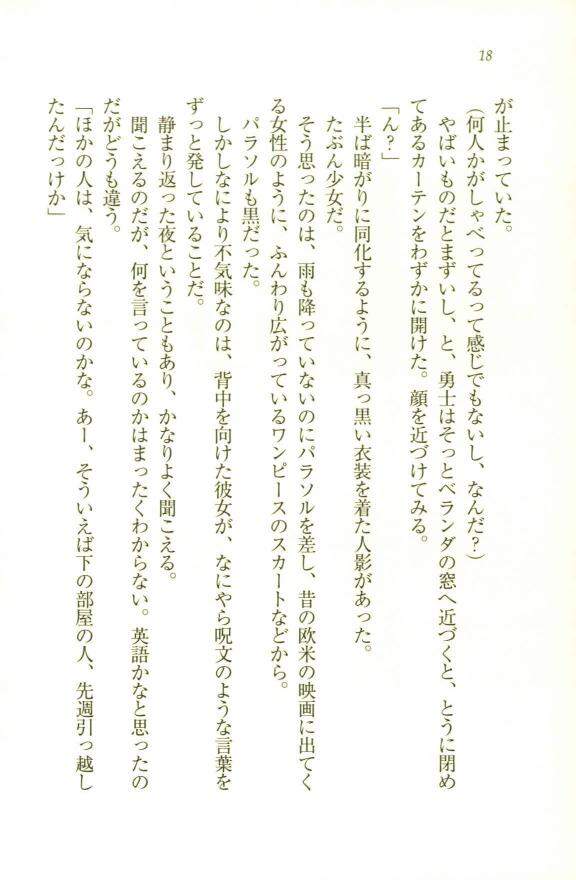 18
が止まっていた。
（何人かがしゃべってるって感じでもないし、なんだ？）
やばいものだとまずいし、と、勇士はそっとベランダの窓へ近づくと、とうに閉め
てあるカーテンをわずかに開けた。顔を近づけてみる。
「ん？」
半ば暗がりに同化するように、真っ黒い衣装を着た人影があった。
たぶん少女だ。
そう思ったのは、雨も降っていないのにパラソルを差し、昔の欧米の映画に出てく
る女性のように、ふんわり広がっているワンピースのスカートなどから。
パラソルも黒だった。
しかしなにより不気味なのは、背中を向けた彼女が、なにやら呪文のような言葉を
ずっと発していることだ。
静まり返った夜ということもあり、かなりよく聞こえる。
聞こえるのだが、何を言っているのかはまったくわからない。英語かなと思ったの
だがどうも違う。
「ほかの人は、気にならないのかな。あー、そういえば下の部屋の人、先週引っ越し
たんだっけか」